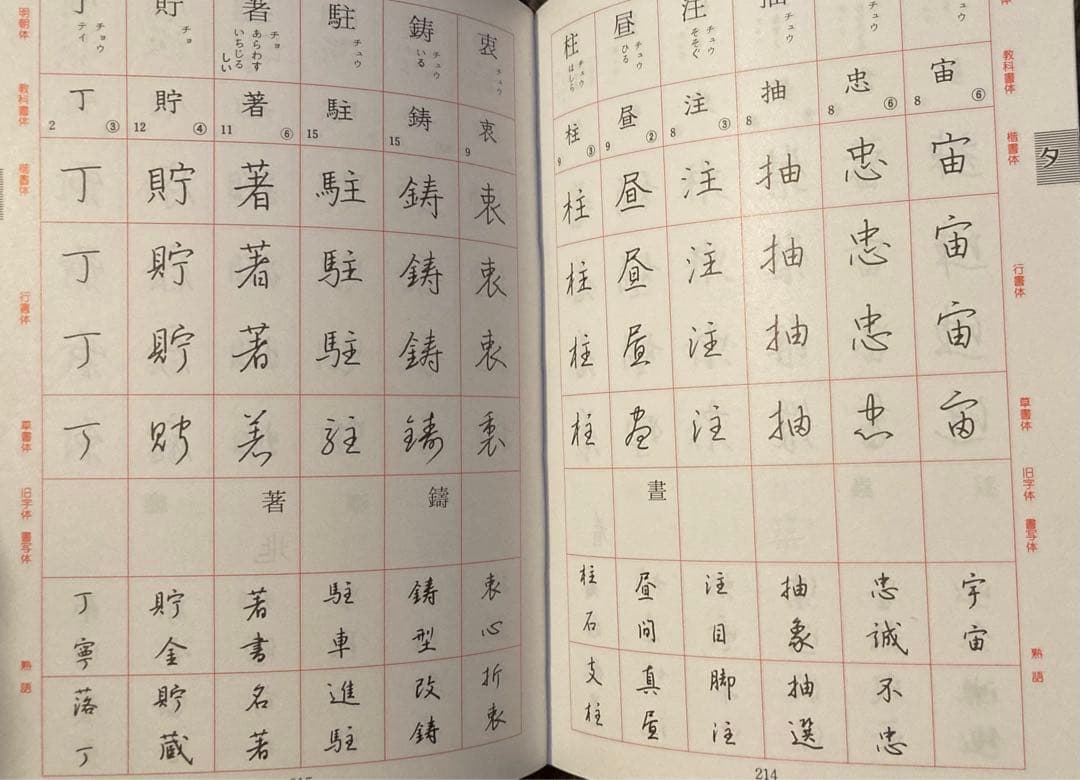 タ
教科書体
楷書体
行書体
草書体
旧字体
書写体
熟語
宙
8
⑥
宙
宙
宙
宙
宇宙
忠
8
⑥
忠
忠
忠
忠
忠誠
不忠
抽
チュウ
抽
8
抽
抽
抽
抽
抽象
抽選
注
チュウ
そそぐ
注
8
③
注
注
注
注
注目
脚注
昼
チュウ
ひる
昼
9
②
昼
昼
昼
昼
晝
昼間
真昼
柱
チュウ
はしら
柱
9
③
柱
柱
柱
柱
柱石
支柱
214
衷
チュウ
衷
9
衷
衷
衷
衷
衷心
折衷
鋳
チュウ
いる
鋳
15
鋳
鋳
鋳
鋳
鑄
鋳型
改鋳
駐
チュウ
駐
15
駐
駐
駐
駐
駐車
進駐
著
チョ
あらわす
いちじるしい
著
11
⑥
著
著
著
著
著
著書
名著
貯
チョ
貯
12
④
貯
貯
貯
貯
貯金
貯蔵
丁
チョウ
テイ
丁
2
③
丁
丁
丁
丁
丁寧
落丁
明朝体
教科書体
楷書体
行書体
草書体
旧字体
書写体
熟語